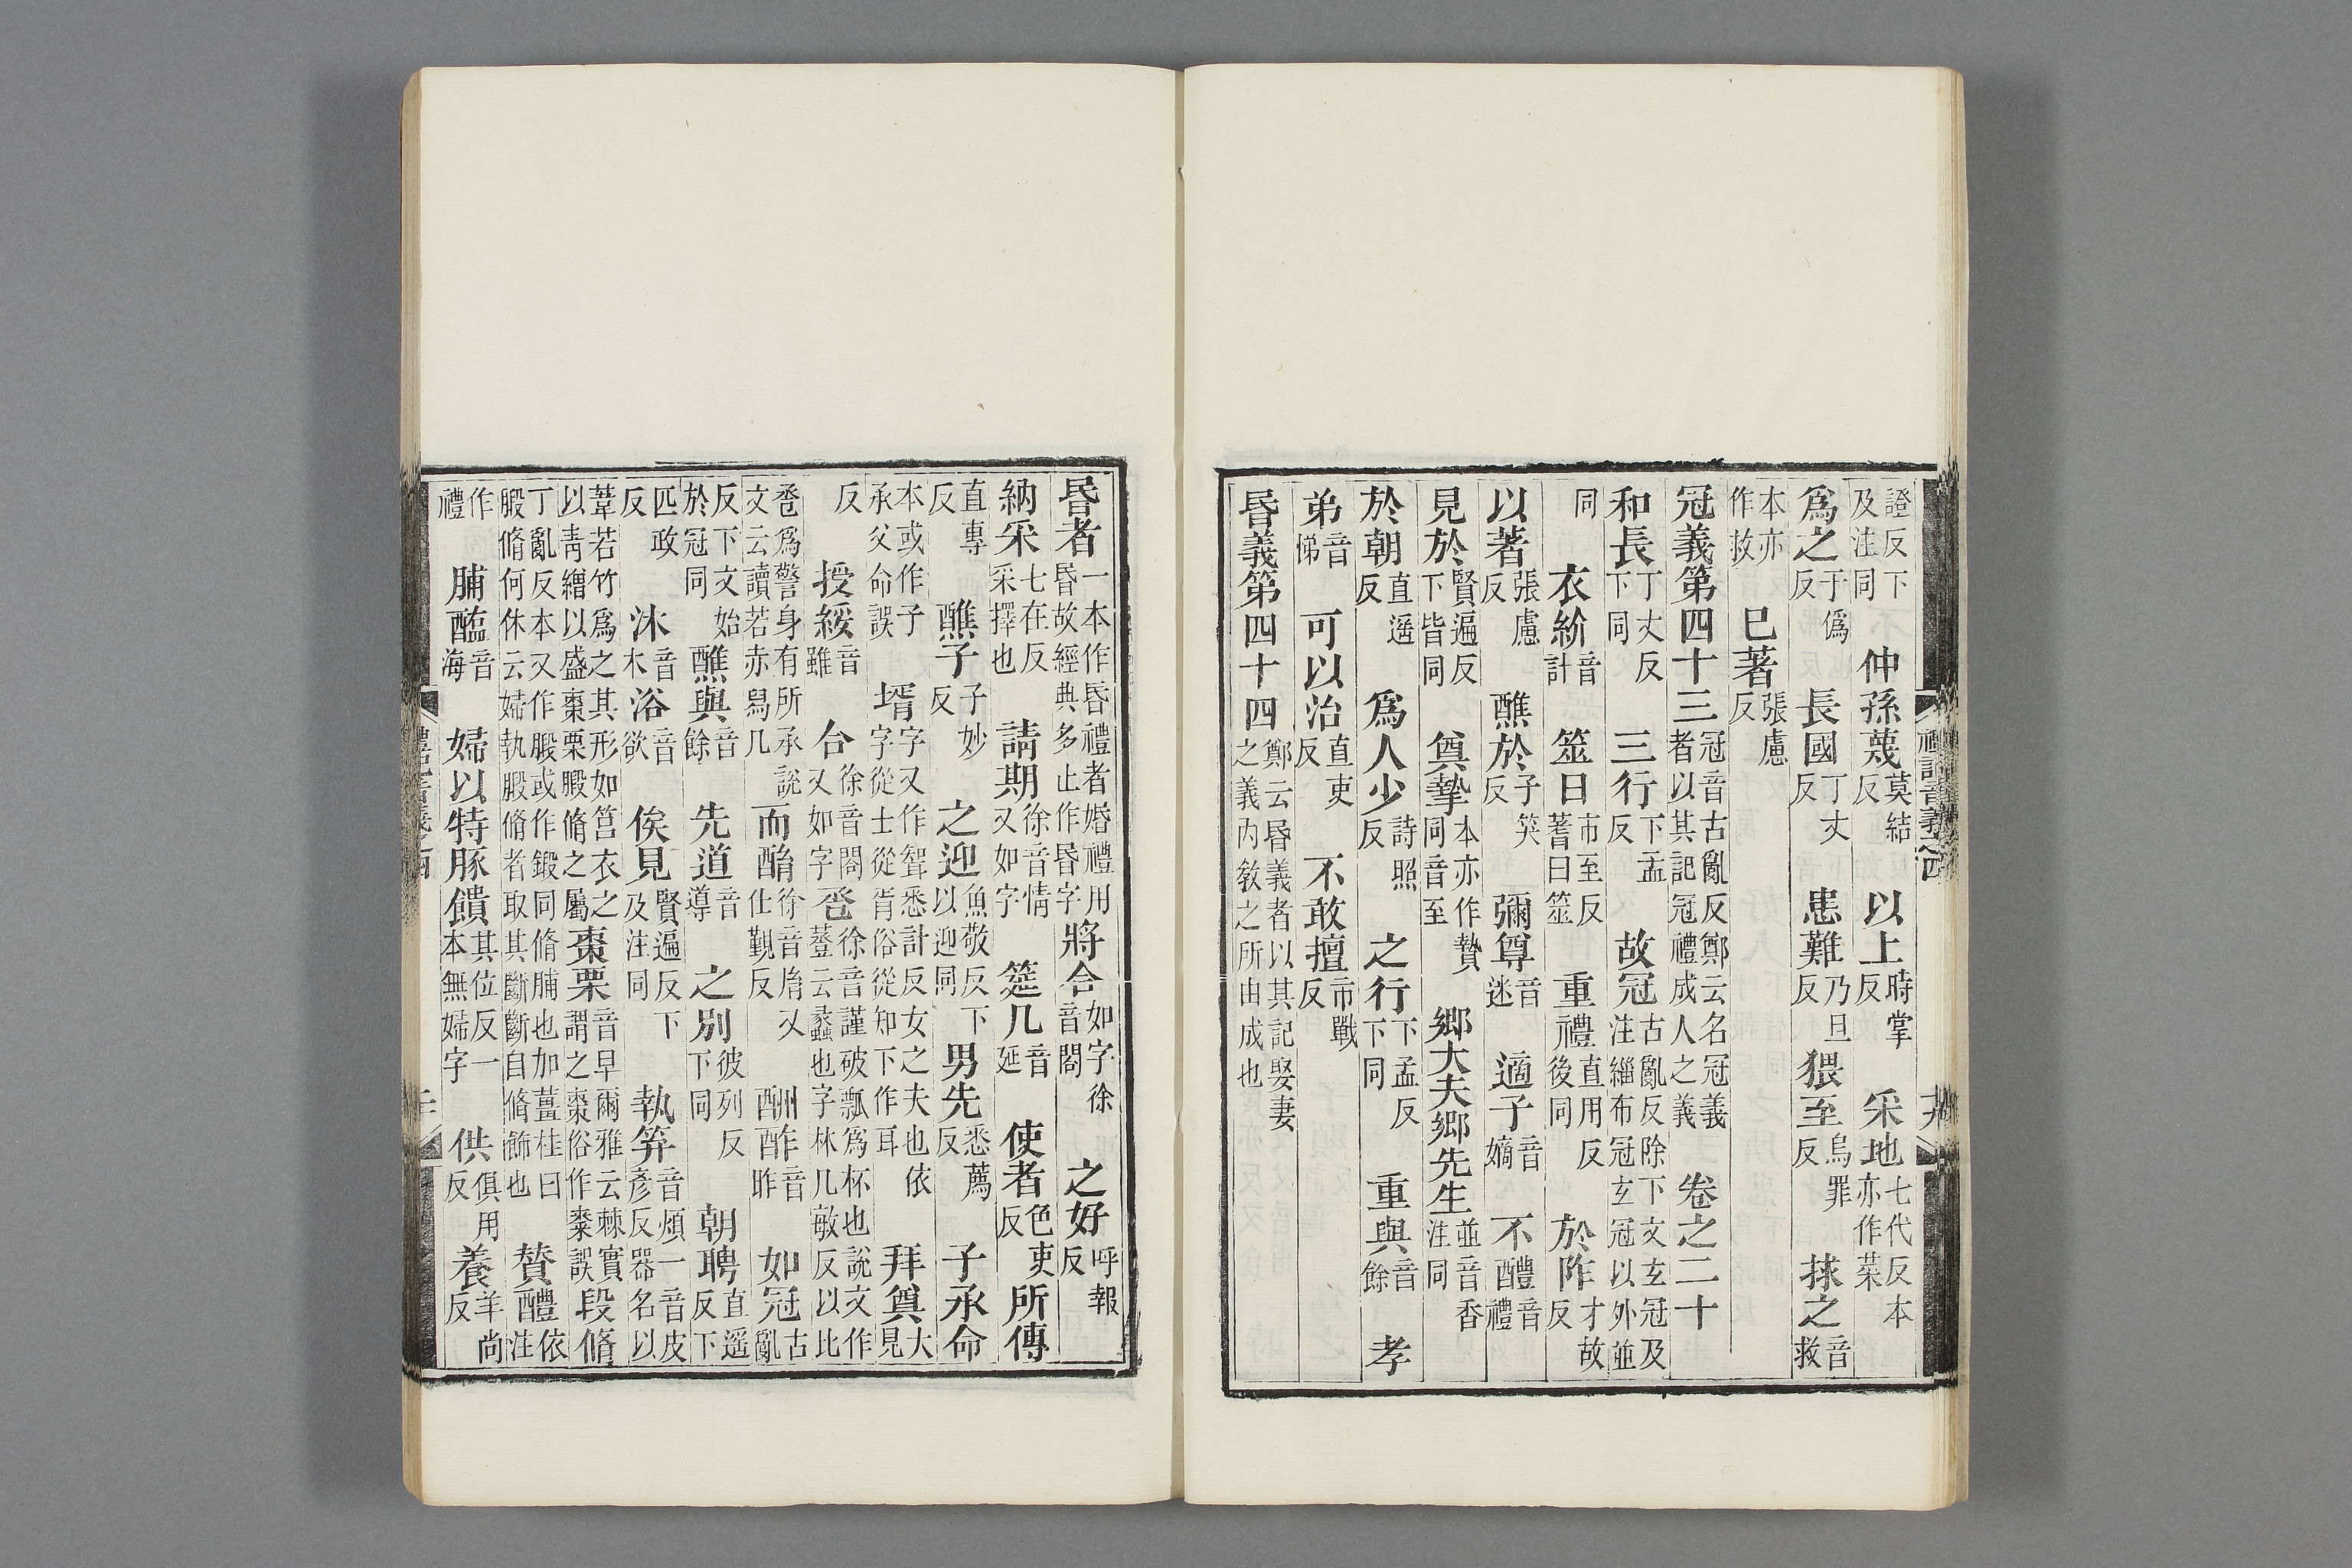 證反下及注同 仲孫蔑莫結反 以上時掌反 采地七代反本亦作菜
爲之于僞反 長國丁丈反 患難乃旦反 猥至烏罪反 捄之音救
本亦作救 已著張慮反
冠義第四十三冠音古亂反鄭云名冠義者以其記冠禮成人之義 卷之二十
和長丁丈反下同 三行下孟反 故冠古亂反除下文玄冠及注緇布冠玄冠以外並
同 衣紒音計 筮日市至反蓍曰筮 重禮直用反後同 於阼才故反
以著張慮反 醮於子笑反 彌尊音迷 適子音嫡 不醴音禮
見於賢遍反下皆同 奠摯本亦作贄同音至 鄉大夫鄉先生並音香注同
於朝直遥反 爲人少詩照反 之行下孟反下同 重與音餘 孝
弟音悌 可以治直吏反 不敢擅市戰反
昏義第四十四鄭云昏義者以其記娶妻之義内敎之所由成也
昏者一本作昏禮者婚禮用昏故經典多止作昏字 將合如字徐音閤 之好呼報反
納采七在反采擇也 請期徐音情又如字 筵几音延 使者色吏反 所傳
直專反 醮子子妙反 之迎魚敬反下以迎同 男先悉薦反 子承命
本或作子承父命誤 壻字又作聟悉計反女之夫也依字從士從胥俗從知下作耳 拜奠大見
反 授綏音雖 合徐音閤又如字 卺徐音謹破瓢爲杯也說文作䔖云蠡也字林几敏反以比
卺爲警身有所承說文云讀若赤舄几 而酳徐音胤又仕覲反 酬酢音昨 如冠古亂
反下文始於冠同 醮與音餘 先道音導 之別彼列反下同 朝聘直遥反下
匹政反 沐音木 浴音欲 俟見賢遍反下及注同 執笲音煩一音皮彥反器名以
葦若竹爲之其形如筥衣之以靑繒以盛棗栗腶脩之屬 棗栗音早爾雅云棘實謂之棗俗作枣誤 段脩
丁亂反本又作腶或作鍛同脩脯也加薑桂曰腶脩何休云婦執腶脩者取其斷斷自脩飾也 贊醴依注
作禮 脯醢音海 婦以特豚饋其位反一本無婦字 供俱用反 養羊尚反